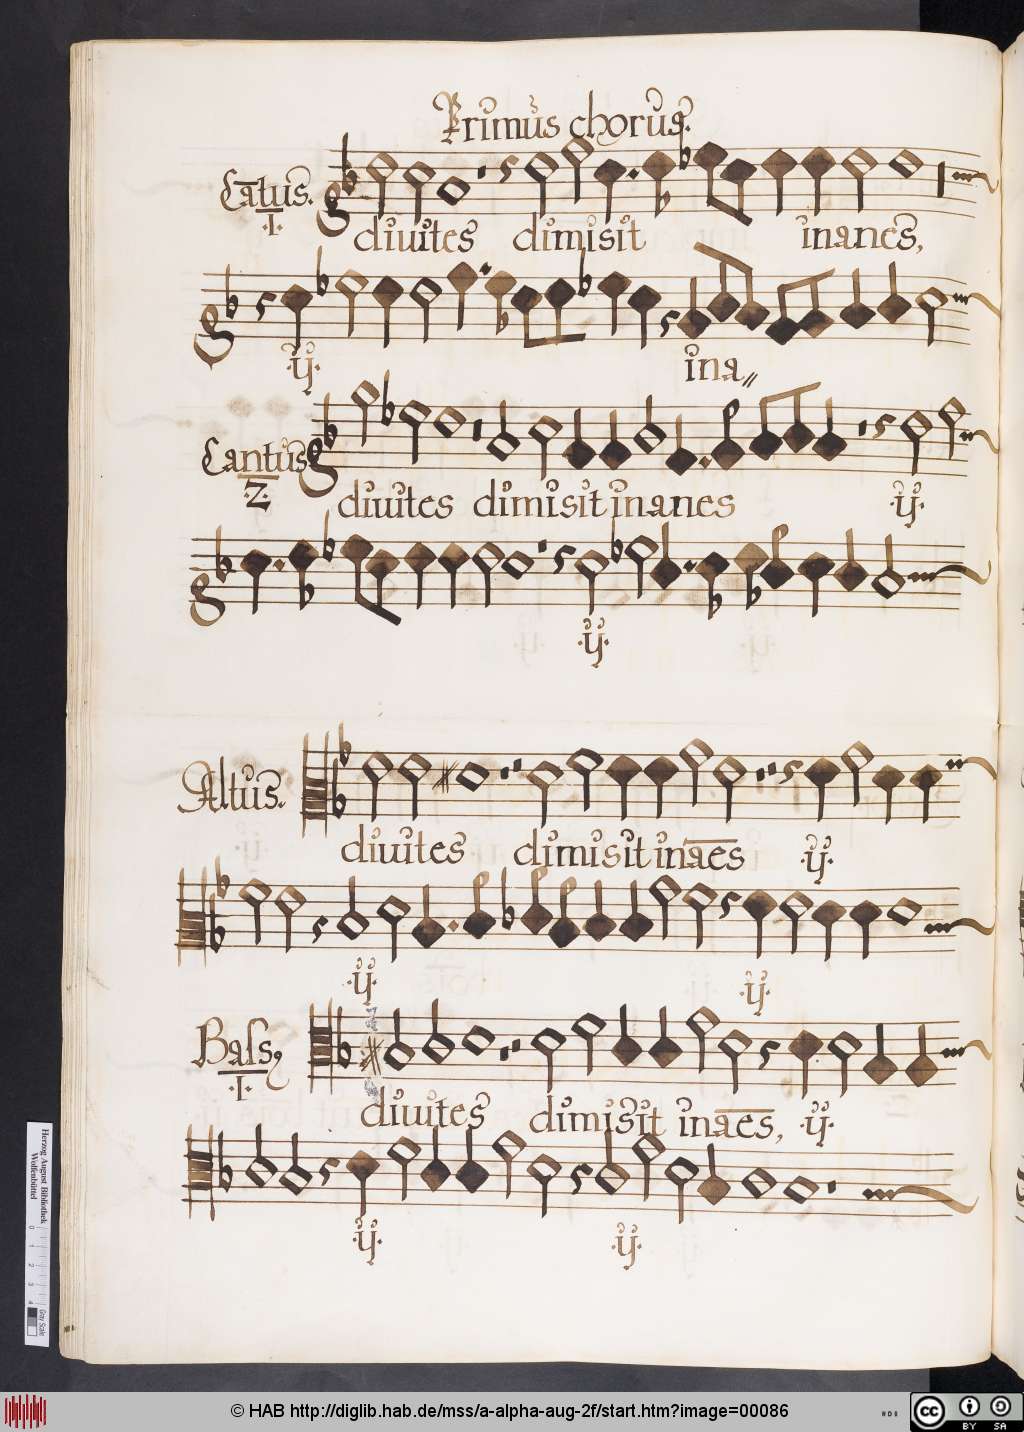 Primus chorus.
Cātus.
.I.
diuites dimisit inanes,
.ij.
ina〃
Cantus
.2.
diuites dimisit inanes .ij.
.ij.
Altus.
diuites dimisit ināes .ij.
.ij. .ij.
Bass9
.I.
diuites dimisit ināes, .ij.
.ij. .ij.
Herzog August Bibliothek
Wolfenbüttel
0 1 2 3 4
Gray Scale
© HAB http://diglib.hab.de/mss/a-alpha-aug-2f/start.htm?image=00086
cc BY SA